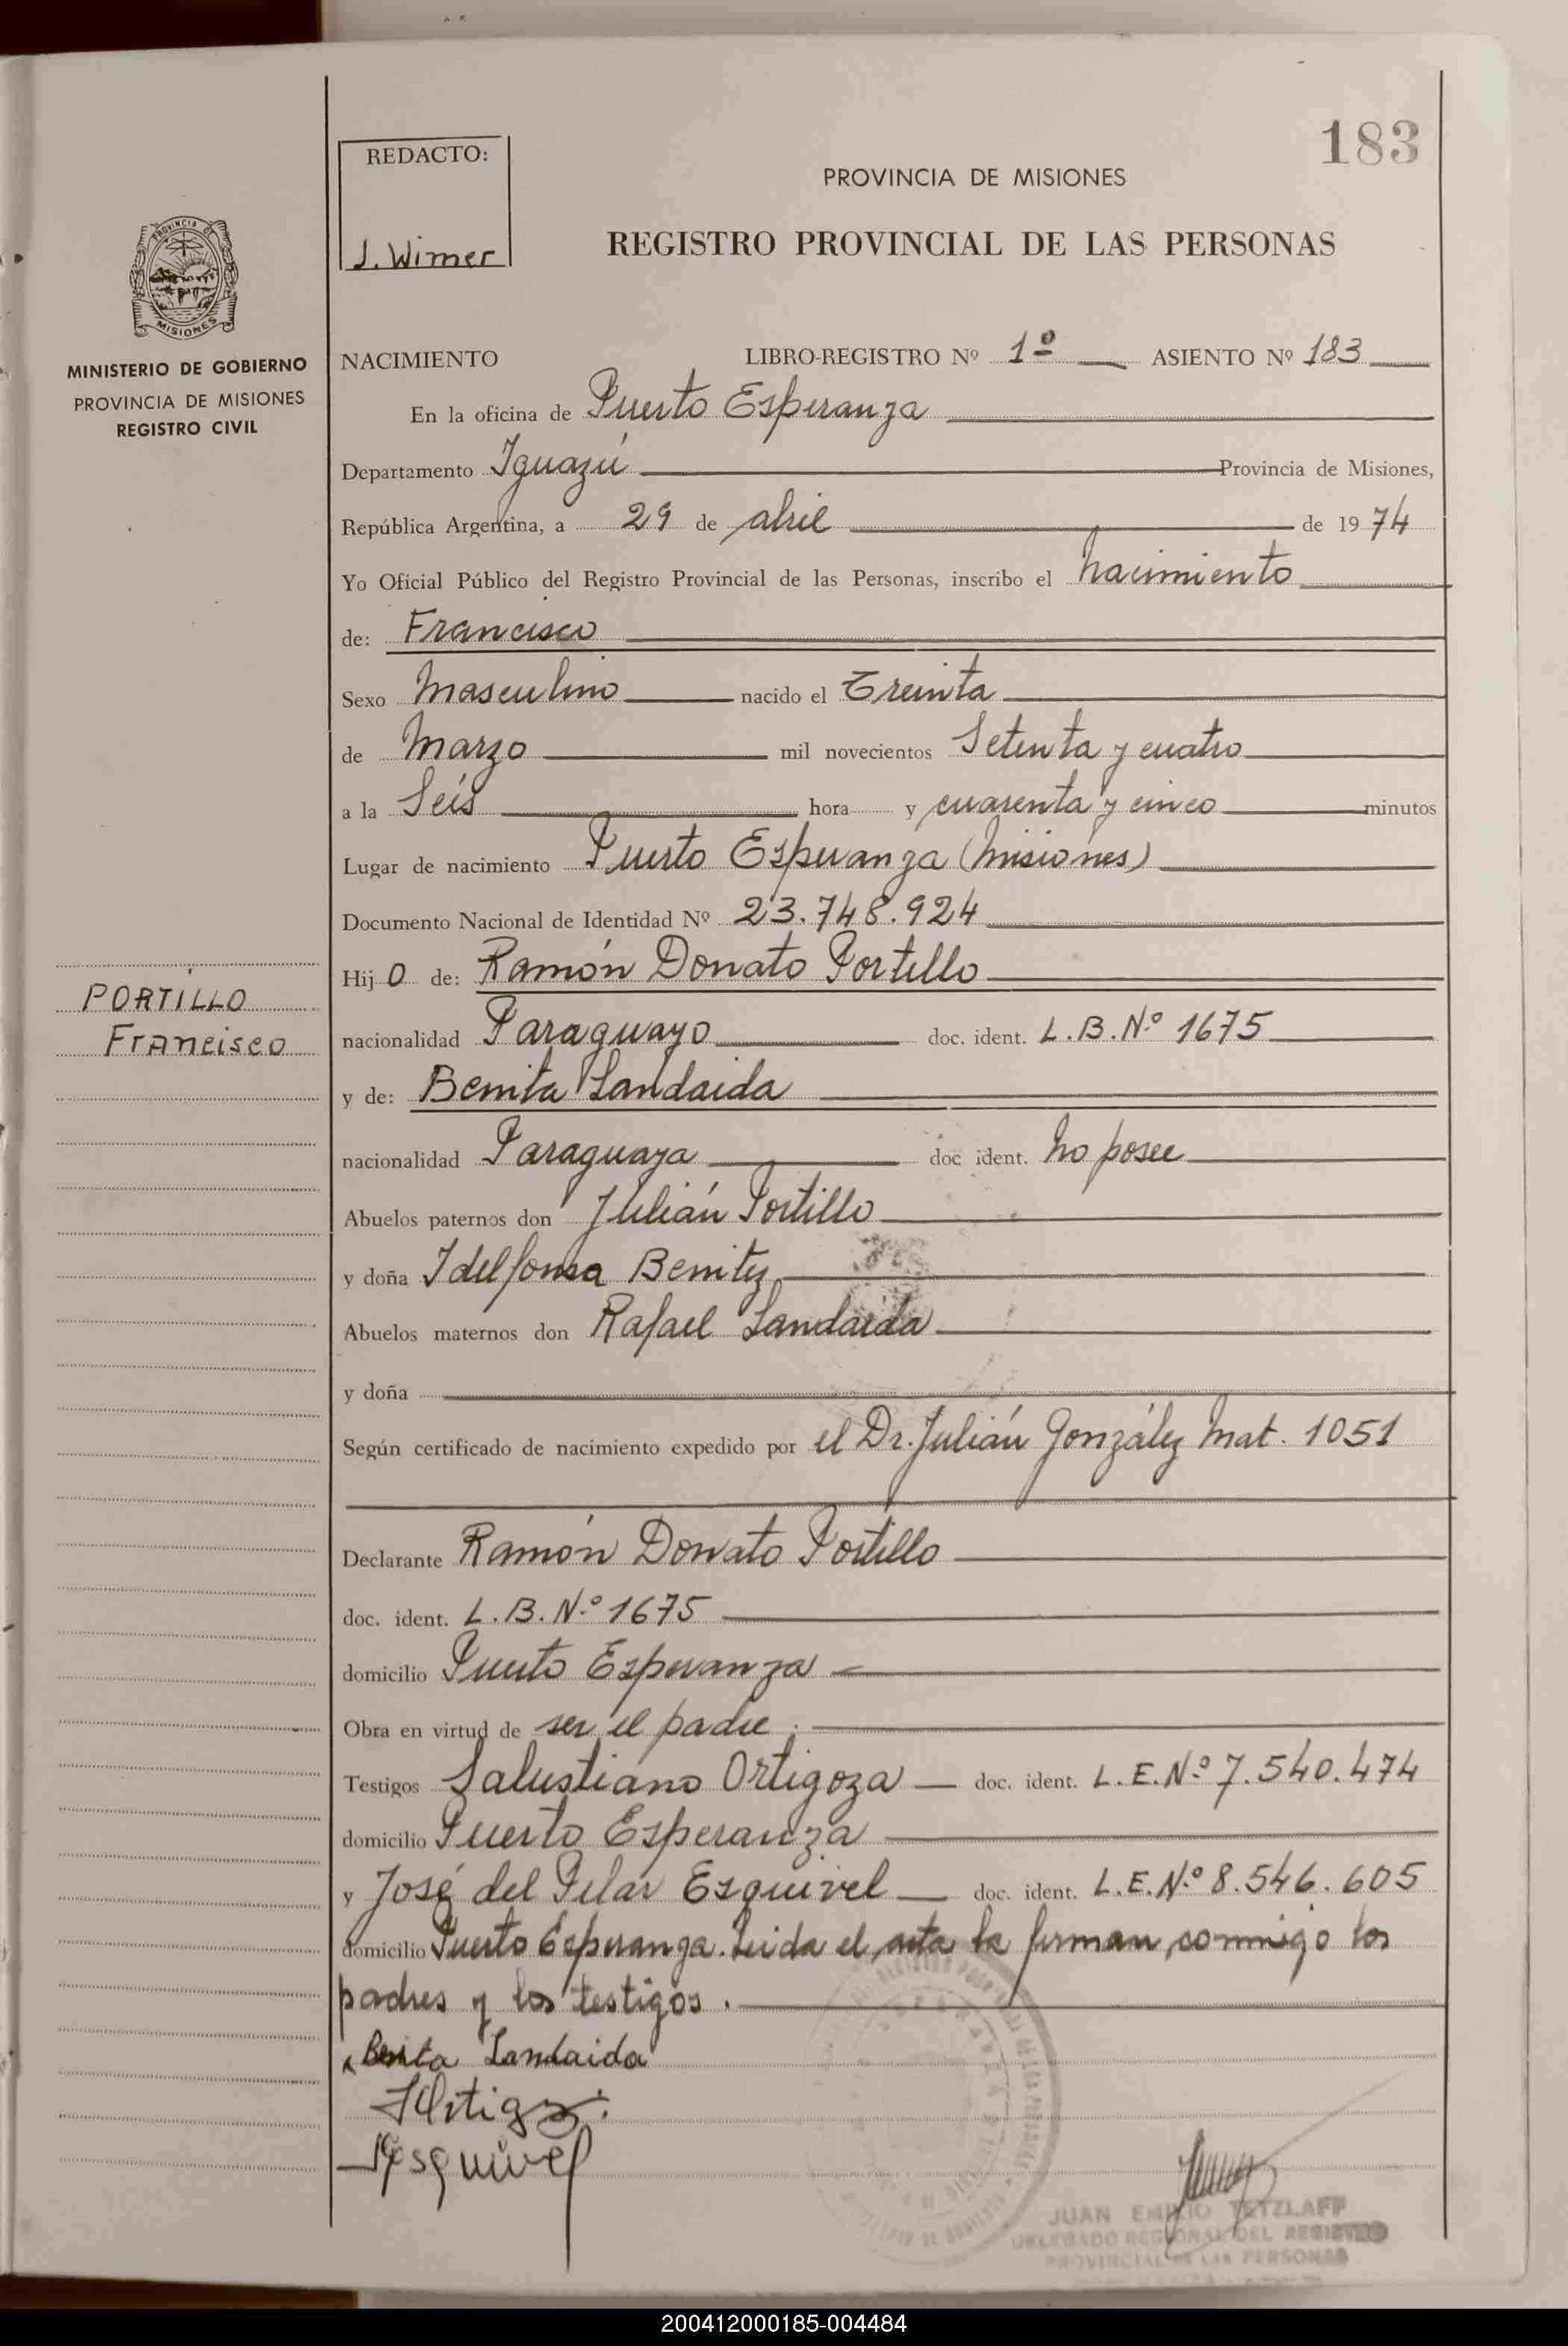 183
REDACTO:
J. Wimer
PROVINCIA DE MISIONES
REGISTRO PROVINCIAL DE LAS PERSONAS
PROVINCIA DE
MISIONES
MINISTERIO DE GOBIERNO
PROVINCIA DE MISIONES
REGISTRO CIVIL
NACIMIENTO LIBRO-REGISTRO Nº 1º ASIENTO Nº 183
En la oficina de Puerto Esperanza
Departamento Iguazú Provincia de Misiones,
República Argentina, a 29 de abril de 1974
Yo Oficial Público del Registro Provincial de las Personas, inscribo el nacimiento
de: Francisco
Sexo Masculino nacido el Treinta
de Marzo mil novecientos Setenta y cuatro
a la Seis hora y cuarenta y cinco minutos
Lugar de nacimiento Puerto Esperanza (Misiones)
Documento Nacional de Identidad Nº 23.748.924
Hijo de: Ramón Donato Portillo
PORTILLO
Francisco
nacionalidad Paraguayo doc. ident. L.B.Nº 1675
y de: Benita Landaida
nacionalidad Paraguaya doc ident. no posee
Abuelos paternos don Julián Portillo
y doña Idelfonsa Benitez
Abuelos maternos don Rafael Landaida
y doña
Según certificado de nacimiento expedido por el Dr. Julián González Mat. 1051
Declarante Ramón Donato Portillo
doc. ident. L.B.Nº 1675
domicilio Puerto Esperanza
Obra en virtud de ser el padre.
Testigos Salustiano Ortigoza doc. ident. L.E.Nº 7.540.474
domicilio Puerto Esperanza
y José del Pilar Esquivel doc. ident. L.E.Nº 8.546.605
domicilio Puerto Esperanza. Leida el acta la firman conmigo los
padres y los testigos.
Benita Landaida
JUAN EMILIO TETZLAFF
DELEGADO REGIONAL DEL REGISTRO
PROVINCIAL DE LAS PERSONAS
200412000185-004484